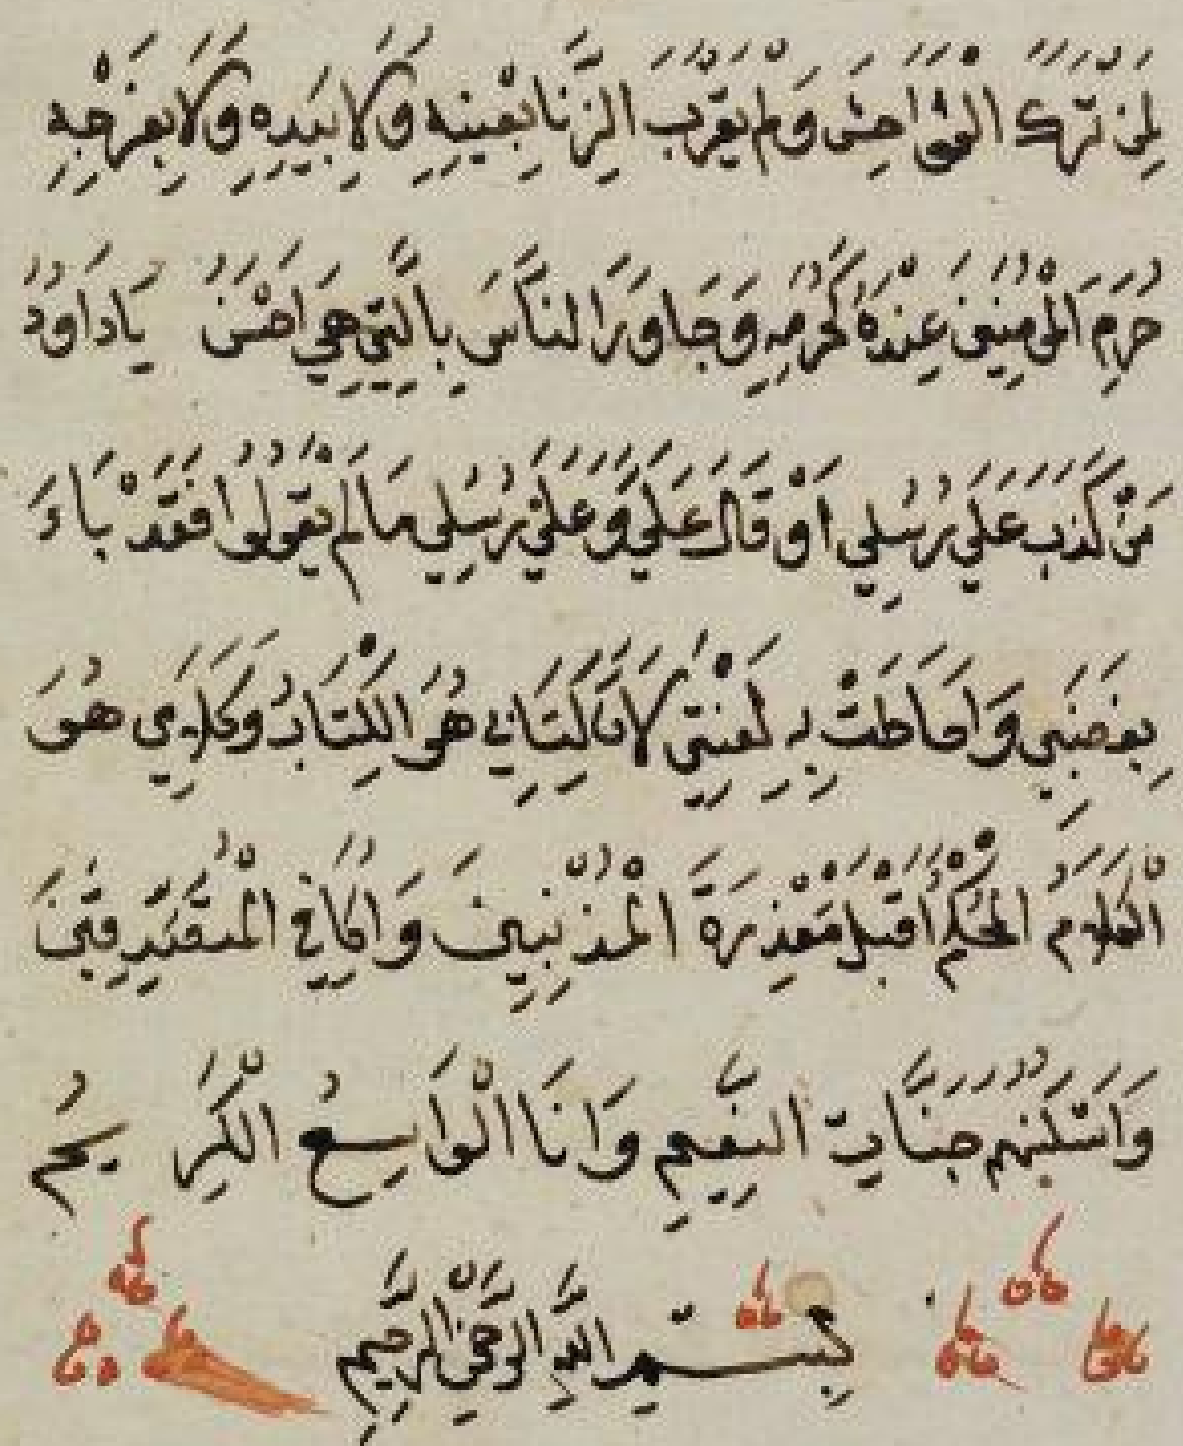 لِمَنْ تَرَكَ الْفَوَاحِشَ وَلَمْ يَقْرُبَ الزِّنَا بِعَيْنِهِ وَلَا بِيَدِهِ وَلَا بِفَرْجِهِ
حُرِمَ الْمُؤْمِنِينَ عِنْدَهُ كَحُرَمِهِ وَجَاوَرَ النَّاسَ بِالَّتِي هِيَ احْسَنُ يَا دَاوُدُ
مَنْ كَذَبَ عَلَي رُسُلِي اَوْ قَالَ عَلَيَّ وَعَلَيْ رُسُلِي مَا لَمْ يَقُولُوا فَقَدْ بَاءَ
بِغَضَبِي وَاحَاطَتْ بِهِ لَعْنَتِي لَانَّ كِتَابِي هُوَ الْكِتَابُ وَكَلَامِي هُوَ
الْكَلَامُ الْمُحْكَمُ اقْبَلُ مَعْذِرَةَ الْمُذْنِبِينَ وَاُكَافِي الْمُتَصَدِّقِينَ
وَاسْكِنُهُم جَنَّاتِ النَّعِيمِ وَانَا الْوَاسِعُ الْكَرِيمُ
بِسْمِ اللَّهِ الرَّحْمَنِ الرَّحِيمِ